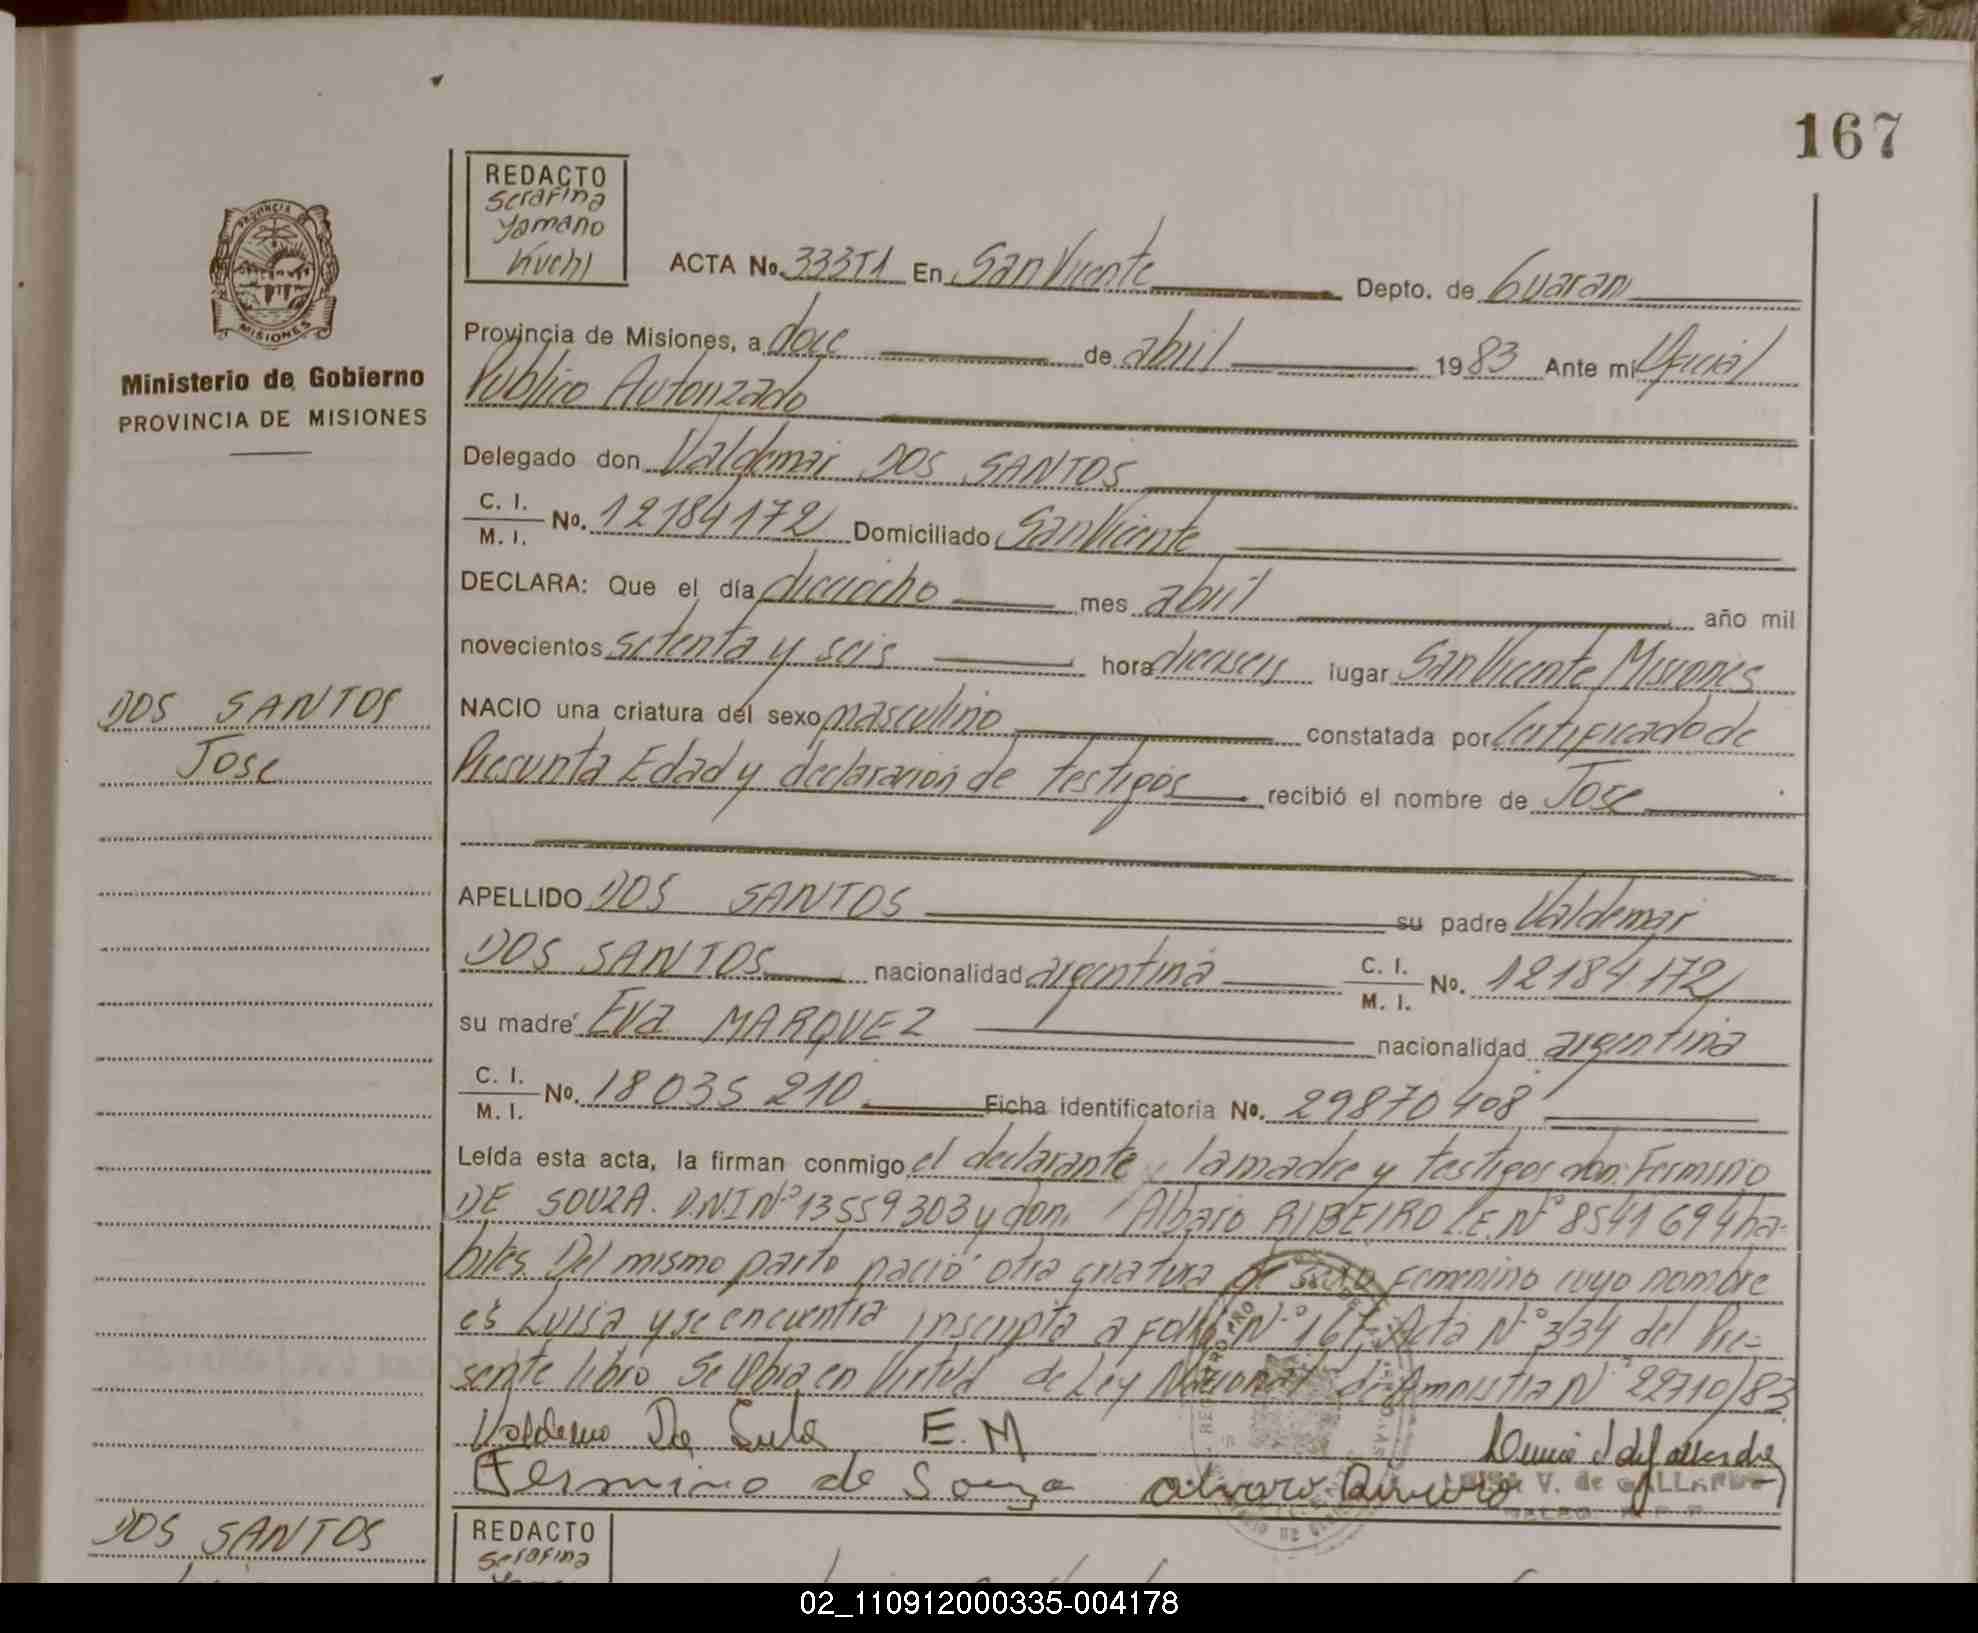 167
REDACTO
Serafina
Yamano
Kuchl
PROVINCIA
MISIONES
Ministerio de Gobierno
PROVINCIA DE MISIONES
ACTA No. 333T1 En San Vicente Depto. de Guarani
Provincia de Misiones, a doce de abril 1983 Ante mi Oficial
Publico Autorizado
Delegado don Valdemar DOS SANTOS
C. I.
M. I. No. 12184172 Domiciliado San Vicente
DECLARA: Que el día dieciocho mes abril año mil
novecientos setenta y seis hora dieciseis lugar San Vicente Misiones
DOS SANTOS
Jose
NACIO una criatura del sexo masculino constatada por Certificado de
Presunta Edad y declaracion de testigos recibió el nombre de Jose
APELLIDO DOS SANTOS su padre Valdemar
DOS SANTOS nacionalidad argentina C. I.
M. I. No. 12184172
su madre Eva MARQUEZ nacionalidad argentina
C. I.
M. I. No. 18035210 Ficha identificatoria No. 29870408
Leída esta acta, la firman conmigo el declarante, la madre y testigos don: Fermino
DE SOUZA. D.N.I Nº 13559303 y don. Albaro RIBEIRO L.E. Nº 8541694 ha-
biles. Del mismo parto nació otra criatura de sexo Femenino cuyo nombre
es Luisa y se encuentra inscripta a Folio Nº 167 Acta Nº 334 del Pre-
sente libro Se labra en Virtud de Ley Nacional de Amnistia Nº 22710/83
E. M
Fermino de Souza
V. de GALLARDO
DOS SANTOS
REDACTO
Serafina
02_110912000335-004178